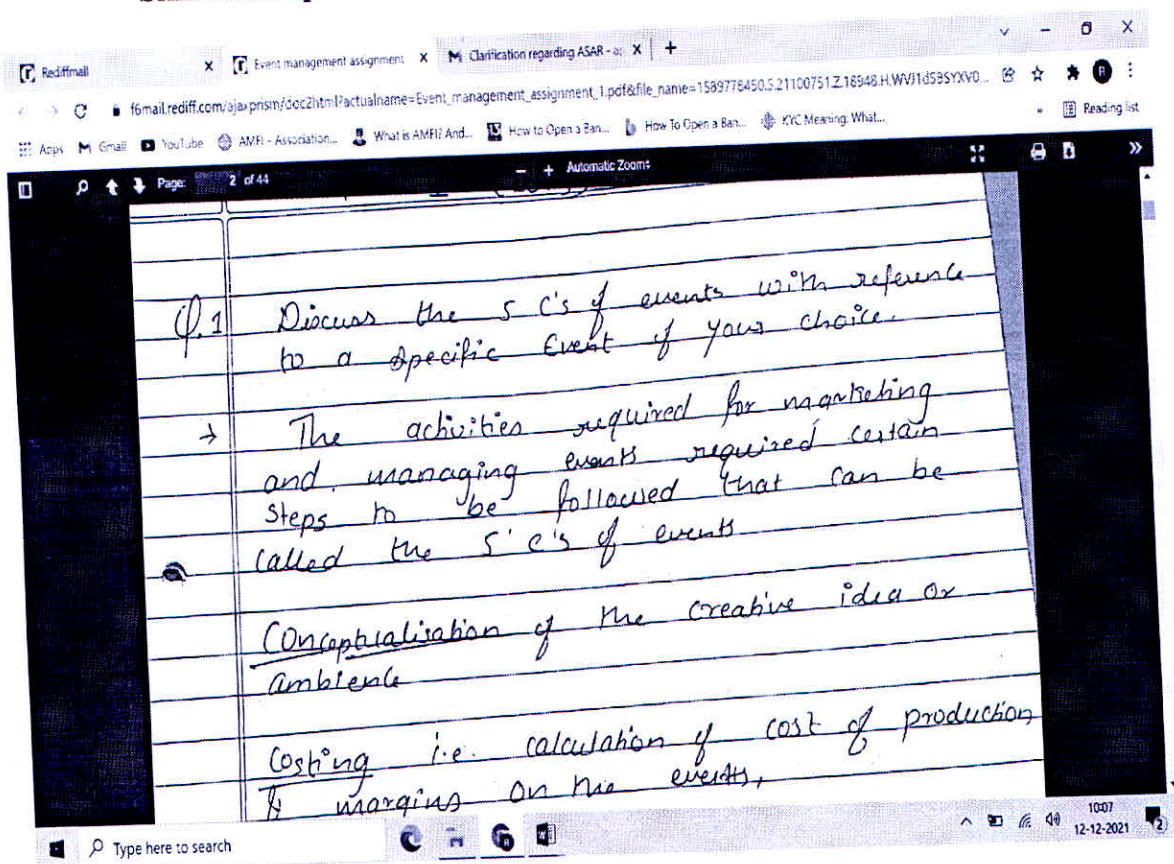 Rediffmail
Event management assignment
Clarification regarding ASAR - a
f6mail.rediff.com/ajaxprism/doc2html?actualname=Event_management_assignment_1.pdf&file_name=
Reading list
Apps Gmail YouTube AMFI - Association... What is AMFI? And... How to Open a Ban... How To Open a Ban... KYC Meaning: What...
Page: 2 of 44 Automatic Zoom
Q.1 Discuss the 5 C's of events with reference
to a specific Event of your choice.
→ The activities required for marketing
and managing events required certain
steps to be followed that can be
called the 5' c's of events
Conceptualisation of the creative idea or
ambience
Costing i.e. calculation of cost of production
& margins on the events,
Type here to search
10:07
12-12-2021
2